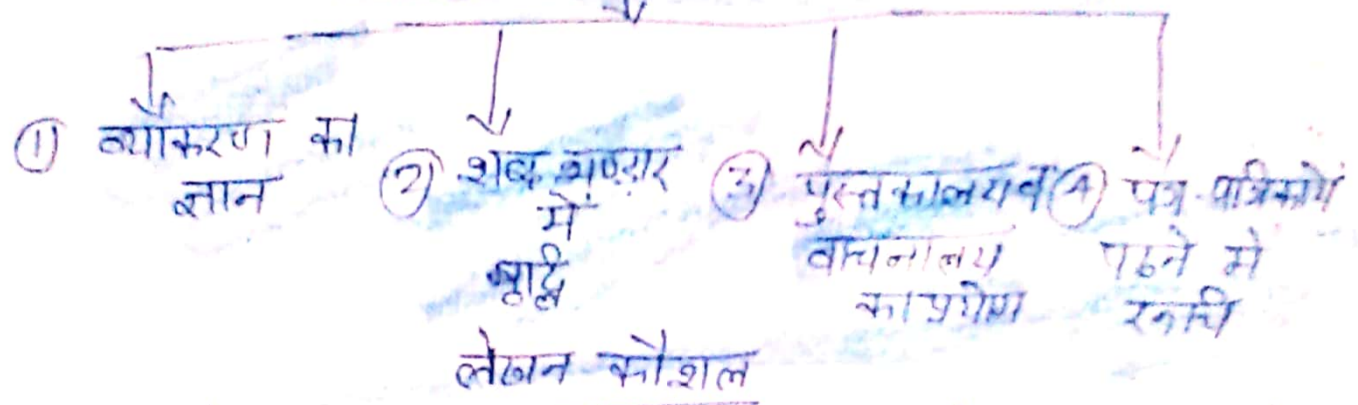 ① व्याकरण का
ज्ञान
② शब्द भण्डार
में
वृद्धि
③ पुस्तकालय व
वाचनालय
का प्रयोग
④ पत्र-पत्रिकायें
पढने मे
रूचि
लेखन कौशल